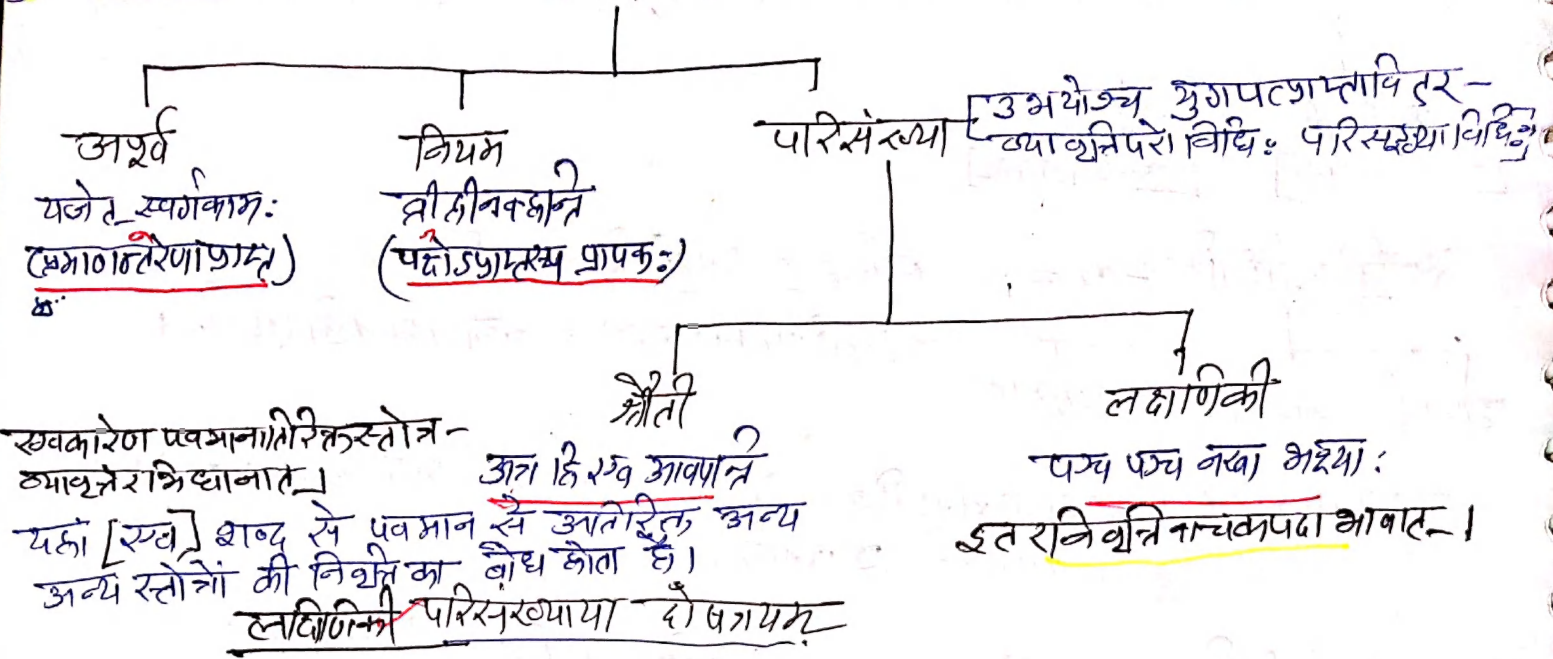 अपूर्व
यजेत स्वर्गकामः
(प्रमाणान्तरेणाप्राप्त)
नियम
व्रीहीनवहन्ति
(पक्षेऽप्राप्तस्य प्रापकः)
परिसंख्या
उभयोश्च युगपत्प्राप्तावितर-
व्यावृत्तिपरो विधिः परिसङ्ख्या विधिः
श्रौती
अत्र हि एव आवपन्ति
एवकारेण पवमानातिरिक्तस्तोत्र-
व्यावृत्तेरभिधानात्।
यहां [एव] शब्द से पवमान से अतिरिक्त अन्य
अन्य स्तोत्रों की निवृत्ति का बोध होता है।
लक्षणिकी
पञ्च पञ्च नखा भक्ष्याः
इतरनिवृत्तिवाचकपदाभावात्।
लक्षिणिकी परिसंख्याया दोषत्रयम्